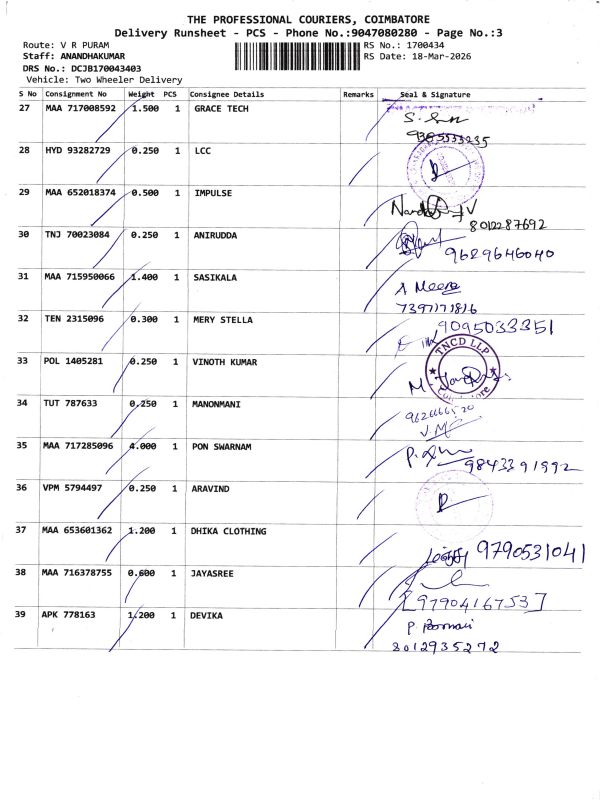 THE PROFESSIONAL COURIERS, COIMBATORE
Delivery Runsheet - PCS - Phone No.:9047080280 - Page No.:3
Route: V R PURAM
RS No.: 1700434
Staff: ANANDHAKUMAR
RS Date: 18-Mar-2026
DRS No.: DCJB170043403
Vehicle: Two Wheeler Delivery
S No Consignment No Weight PCS Consignee Details Remarks Seal & Signature
27 MAA 717008592 1.500 1 GRACE TECH
9385533235
28 HYD 93282729 0.250 1 LCC
29 MAA 652018374 0.500 1 IMPULSE
8012287692
30 TNJ 70023084 0.250 1 ANIRUDDA
9629646040
31 MAA 715950066 1.400 1 SASIKALA
A Meera
7397171816
32 TEN 2315096 0.300 1 MERY STELLA
9095033351
33 POL 1405281 0.250 1 VINOTH KUMAR
TNCD LLP
34 TUT 787633 0.250 1 MANONMANI
35 MAA 717285096 4.000 1 PON SWARNAM
9843391992
36 VPM 5794497 0.250 1 ARAVIND
37 MAA 653601362 1.200 1 DHIKA CLOTHING
9790531041
38 MAA 716378755 0.600 1 JAYASREE
[9790416753]
39 APK 778163 1.200 1 DEVIKA
8012935272